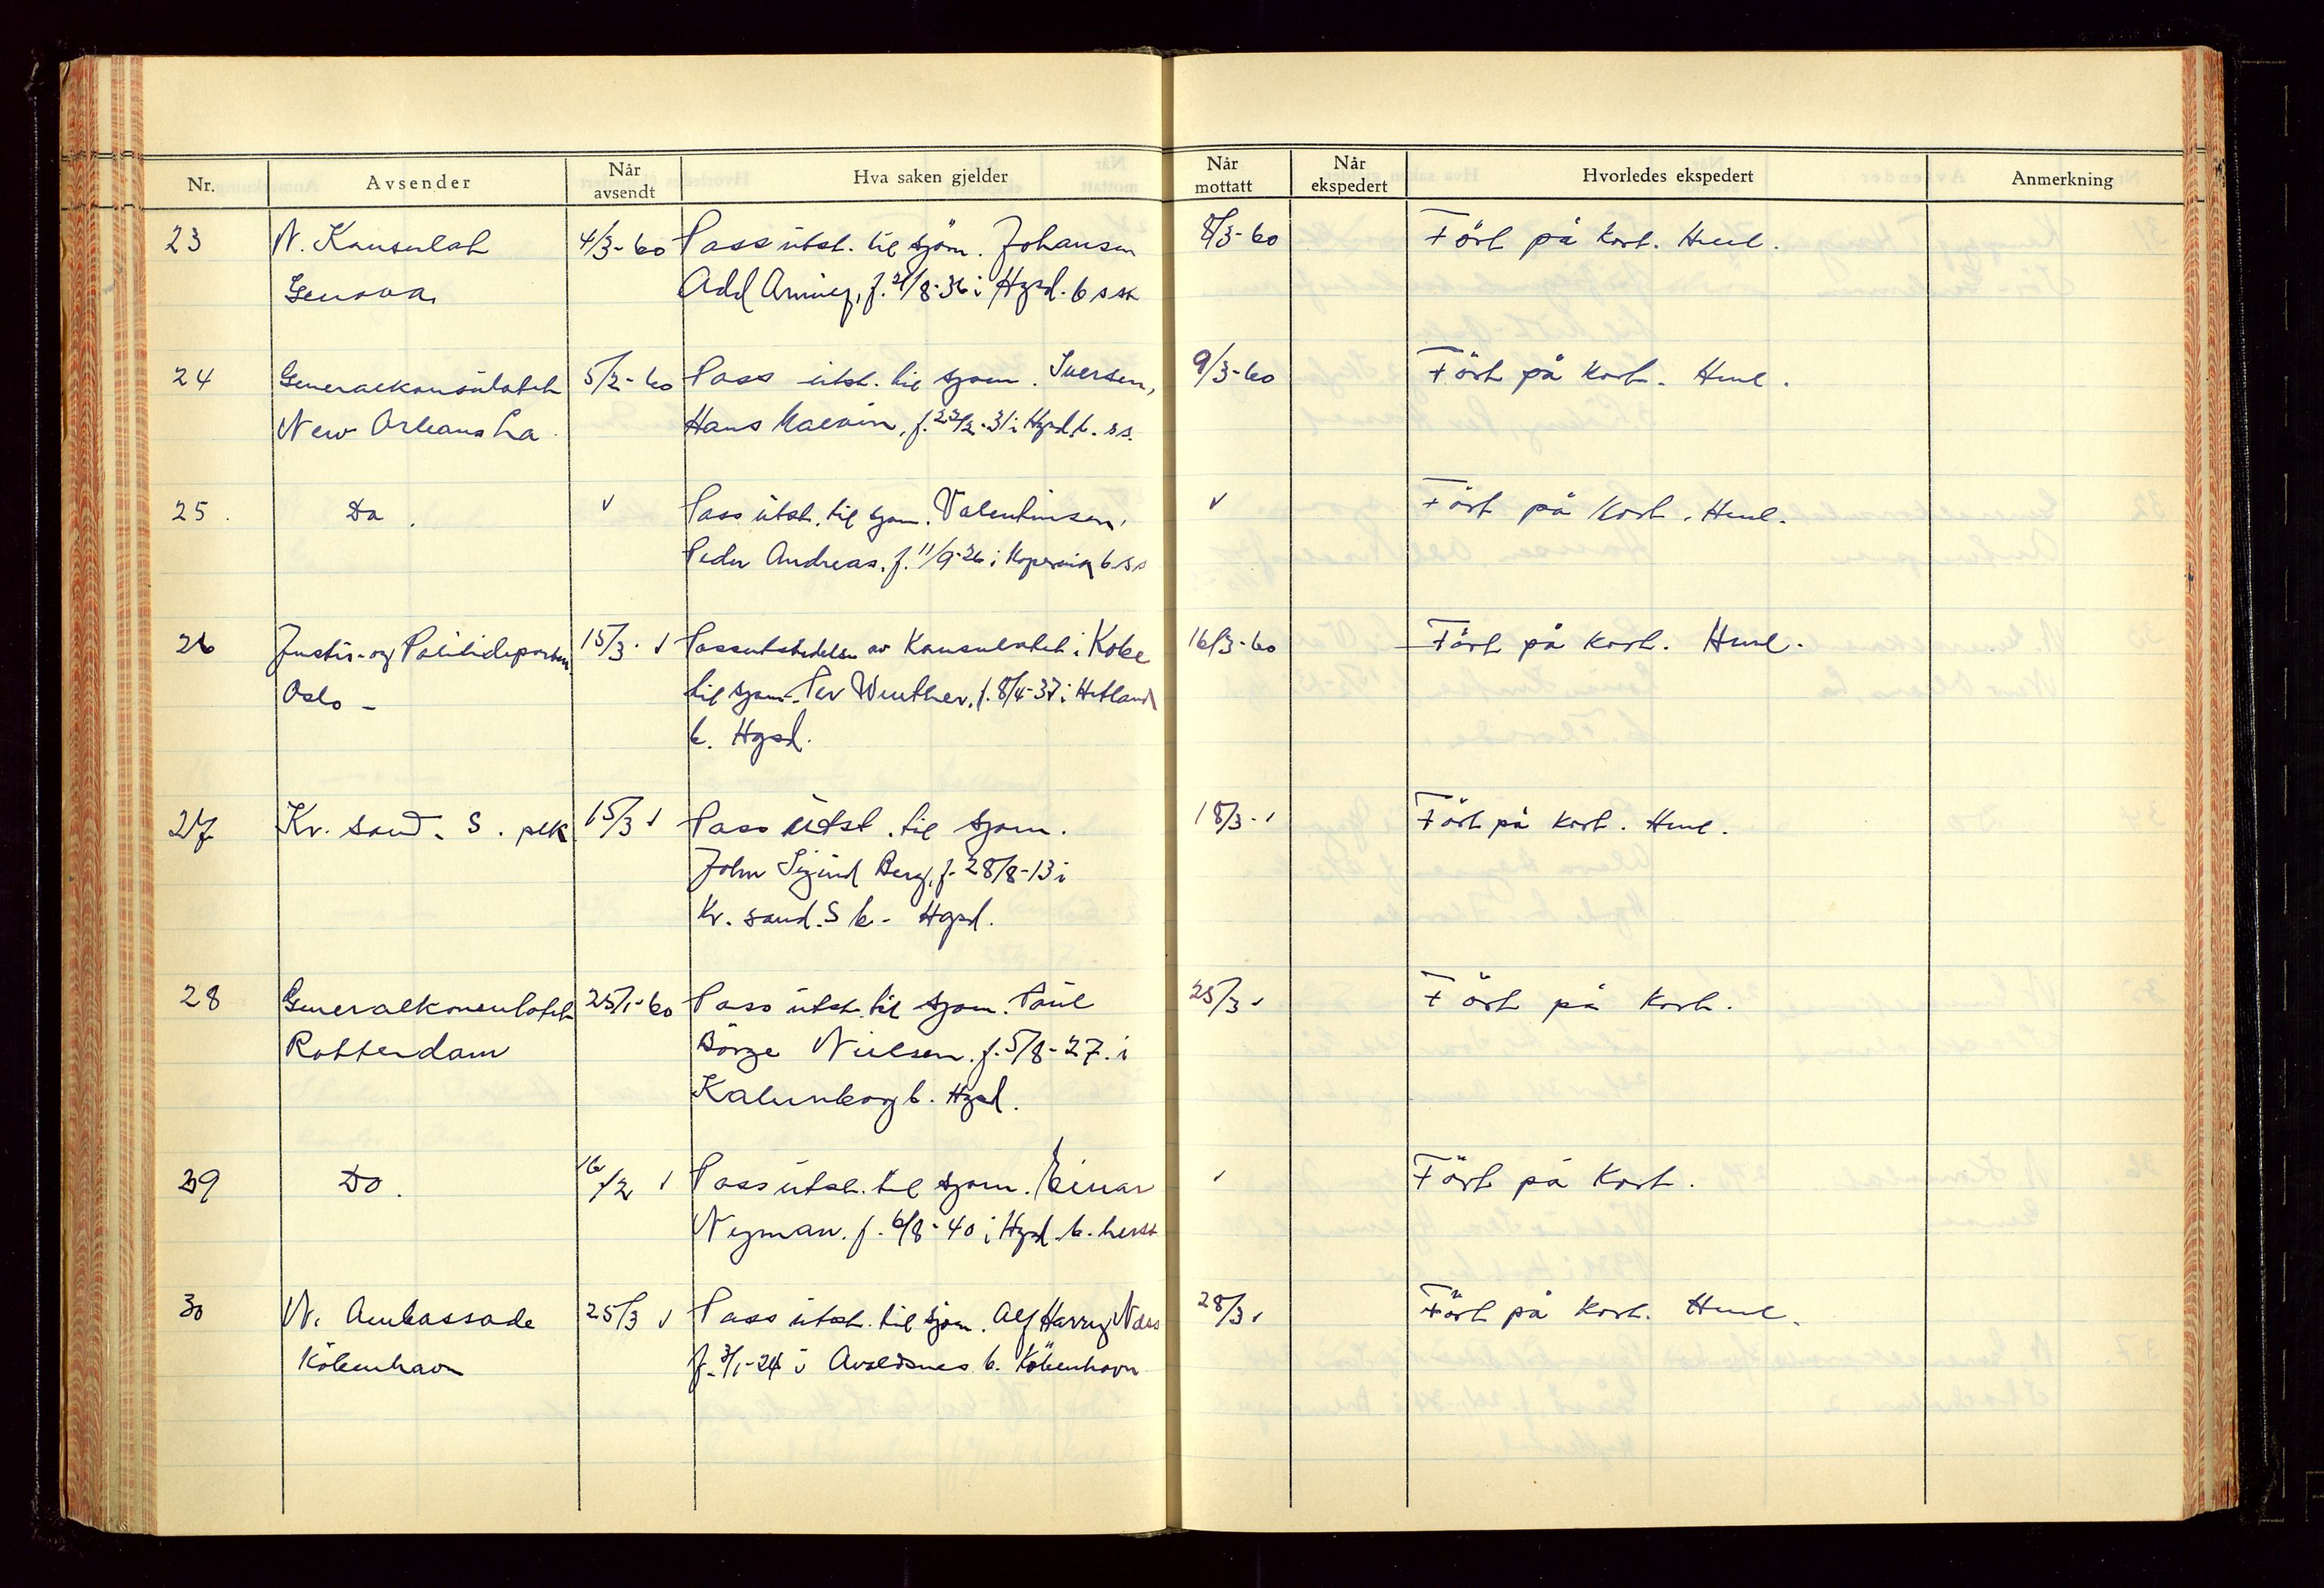 Nr. Avsender Når avsendt Hva saken gjelder Når mottatt Når ekspedert Hvorledes ekspedert Anmerkning
23 N. Konsulat 4/3-60 Pass utst. til sjøm. Johansen 8/3-60 Fört på kort. Hml.
Genova, Add f. 21/8-36 i Hgsd. b s st
24 Generalkonsulatet 5/2-60 Pass utst. til sjøm. Iversen, 9/3-60 Fört på kort. Hml.
New Orleans La. Hans f. 22/2-31 i Hgsd. b. s.s.
25. Do. " Pass utst. til sjøm. Valentinsen, " Fört på kort. Hml.
Peder Andreas, f. 11/9-26 i Kopervik b. s s
26 Justis- og Politideparten 15/3 " Passutstedelse av Konsulatet i Kobe 16/3-60 Fört på kort. Hml.
Oslo - til sjøm. Per Winther, f. 8/4-37 i Hetland
b. Hgsd.
27 Kr. sand. S. plk. 15/3 " Pass utst. til sjøm. 18/3 - " Fört på kort. Hml.
John Sigurd Berg, f. 28/8-13 i
Kr. sand. S b. Hgsd.
28 Generalkonsulatet 25/1-60 Pass utst. til sjøm. Paul 25/3 " Fört på kort.
Rotterdam Börge Nielsen. f. 5/8-27. i
Kalunborg b. Hgsd.
29 Do. 16/2 " Pass utst. til sjøm. Einar " Fört på kort.
Nyman. f. 6/8-40 i Hgsd. b. herst
30 N. Ambassade 25/3 " Pass utst. til sjøm. Alf Harry Næss 28/3 " Fört på kort. Hml.
Köbenhavn f. 3/1-24 i Avaldsnes b. Köbenhavn